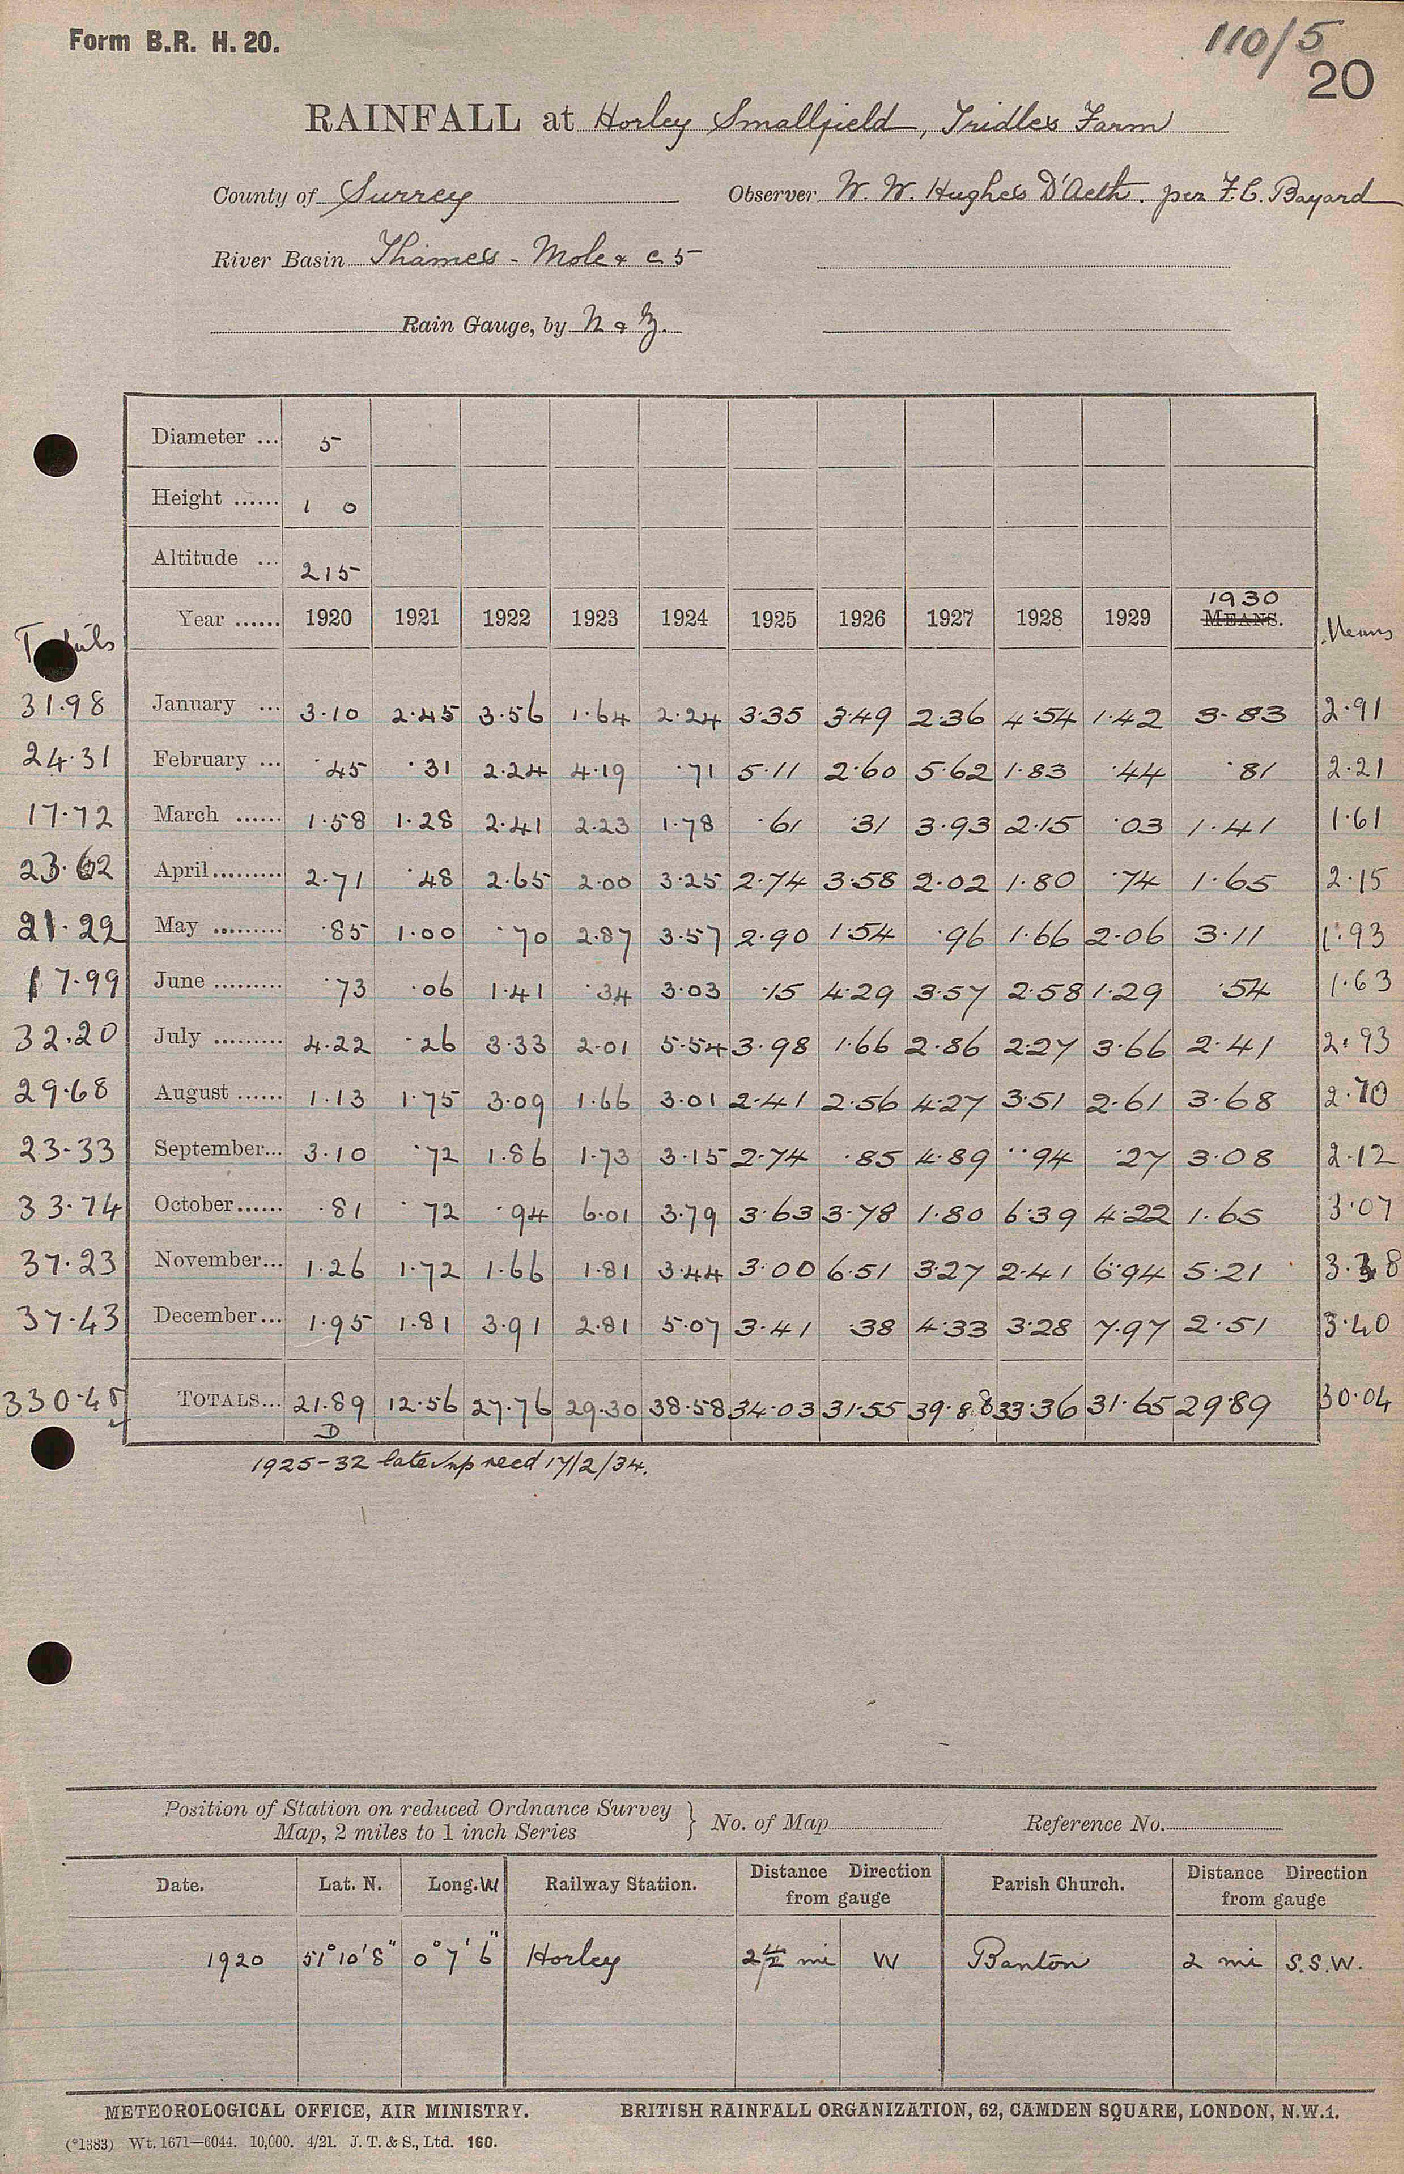 Form B.R. H. 20.
110/5
20
RAINFALL at Horley Smallfield, Tridles Farm
County of Surrey Observer W. W. Hughes D'Aeth. per F. C. Bayard
River Basin Thames - Mole & c 5
Rain Gauge, by N & Z.
Diameter ... 5
Height ...... 1 0
Altitude ... 215
Totals Year ...... 1920 1921 1922 1923 1924 1925 1926 1927 1928 1929 1930 MEANS. Means
31.98 January ... 3.10 2.45 3.56 1.64 2.24 3.35 3.49 2.36 4.54 1.42 3.83 2.91
24.31 February ... .45 .31 2.24 4.19 .71 5.11 2.60 5.62 1.83 .44 .81 2.21
17.72 March ...... 1.58 1.28 2.41 2.23 1.78 .61 .31 3.93 2.15 .03 1.41 1.61
23.62 April ......... 2.71 .48 2.65 2.00 3.25 2.74 3.58 2.02 1.80 .74 1.65 2.15
21.22 May ......... .85 1.00 .70 2.87 3.57 2.90 1.54 .96 1.66 2.06 3.11 1.93
17.99 June ......... .73 .06 1.41 .34 3.03 .15 4.29 3.57 2.58 1.29 .54 1.63
32.20 July ......... 4.22 .26 3.33 2.01 5.54 3.98 1.66 2.86 2.27 3.66 2.41 2.93
29.68 August ...... 1.13 1.75 3.09 1.66 3.01 2.41 2.56 4.27 3.51 2.61 3.68 2.70
23.33 September... 3.10 .72 1.86 1.73 3.15 2.74 .85 4.89 .94 .27 3.08 2.12
33.74 October...... .81 .72 .94 6.01 3.79 3.63 3.78 1.80 6.39 4.22 1.65 3.07
37.23 November... 1.26 1.72 1.66 1.81 3.44 3.00 6.51 3.27 2.41 6.94 5.21 3.38
37.43 December... 1.95 1.81 3.91 2.81 5.07 3.41 .38 4.33 3.28 7.97 2.51 3.40
330.45 TOTALS... 21.89 12.56 27.76 29.30 38.58 34.03 31.55 39.88 33.36 31.65 29.89 30.04
D
1925-32 late recd 17/2/34.
Position of Station on reduced Ordnance Survey
Map, 2 miles to 1 inch Series } No. of Map Reference No.
Date. Lat. N. Long. W Railway Station. Distance Direction from gauge Parish Church. Distance Direction from gauge
1920 51° 10' 8" 0° 7' 6" Horley mi W 2 mi S.S.W.
METEOROLOGICAL OFFICE, AIR MINISTRY. BRITISH RAINFALL ORGANIZATION, 62, CAMDEN SQUARE, LONDON, N.W.1.
(*1383) Wt. 1671—6044. 10,000. 4/21. J. T. & S., Ltd. 160.